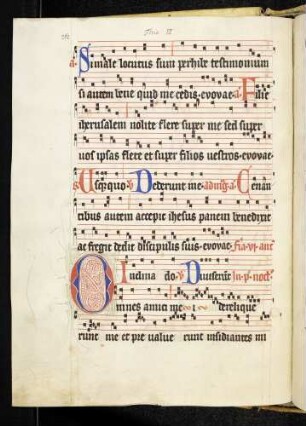 Si male locutus sum perhibe testimonium
si autem bene quid me cedis. evovae. a. Filie
iherusalem nolite flere super me sed super
vos ipsas flete et super filios vestros. evovae.
Usquequo V Dederunt me. ad mg. a. Cenan
tibus autem accepit ihesus panem benedixit
ac fregit dedit discipulis suis. evovae. Fria vi ant
Iudica do V Diviserunt In p. noct.
Omnes amici me i derelique
runt me et pre value runt insidiantes mi